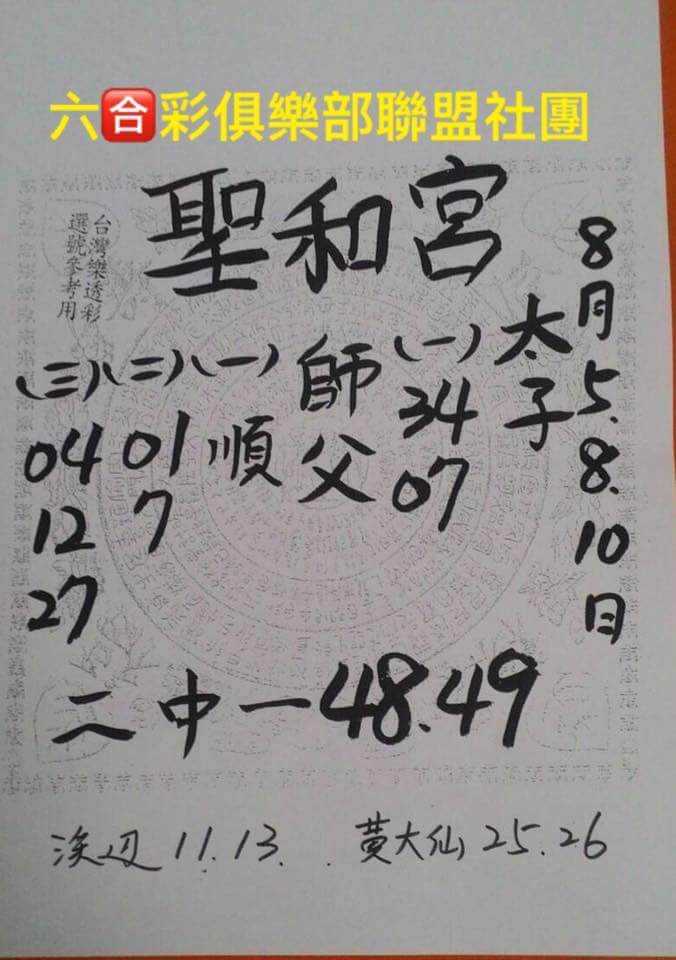 六合彩俱樂部聯盟社團
聖和宮
台灣樂透彩
選號參考用
8月5.8.10日
太子
(一)
34
07
師父
(一)
順
(二)
01
7
(三)
04
12
27
二中一48.49
11.13.
黃大仙25.26